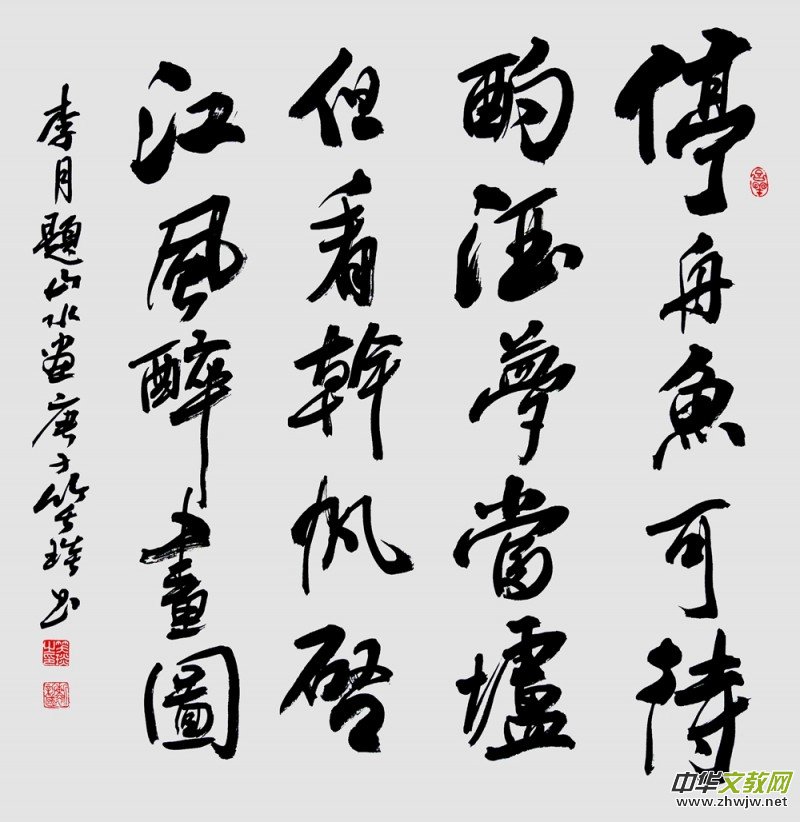 停舟魚可待
酌酒夢當壚
但看幹帆啓
江風醉畫圖
李月題山水畫庚子
書
中华文教网
www.zhwjw.net